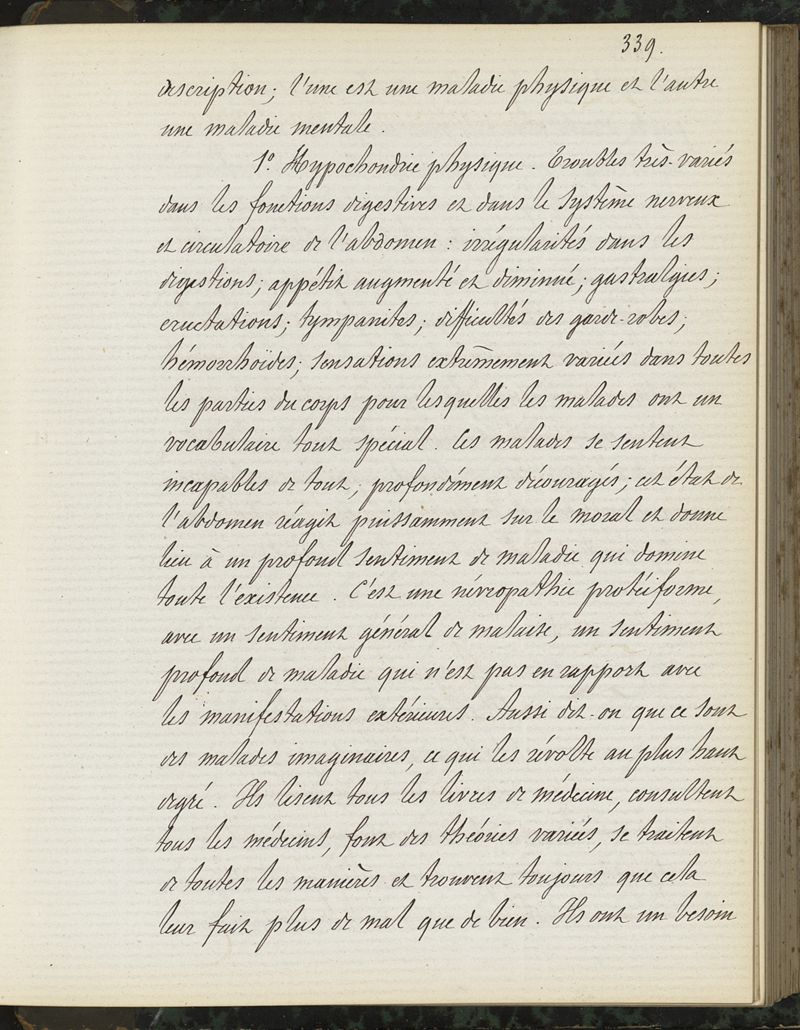 339.
description; l'une est une maladie physique et l'autre
une maladie mentale.
1º. Hypochondrie physique. Troubles très-variés
dans les fonctions digestives et dans le système nerveux
et circulatoire de l'abdomen : irrégularités dans les
digestions; appétit augmenté et diminué; gastralgies;
eructations; tympanites; difficultés des garde-robes;
hémorrhoïdes; sensations extrêmement variées dans toutes
les parties du corps pour lesquelles les malades ont un
vocabulaire tout spécial. Ces malades se sentent
incapables de tout, profondément découragés; cet état de
l'abdomen réagit puissamment sur le moral et donne
lieu à un profond sentiment de maladie qui domine
toute l'existence. C'est une névropathie protéiforme,
avec un sentiment général de malaise, un sentiment
profond de maladie qui n'est pas en rapport avec
les manifestations extérieures. Aussi dit-on que ce sont
des malades imaginaires, ce qui les révolte au plus haut
degré. Ils lisent tous les livres de médecine, consultent
tous les médecins, font des théories variées, se traitent
de toutes les manières et trouvent toujours que cela
leur fait plus de mal que de bien. Ils ont un besoin